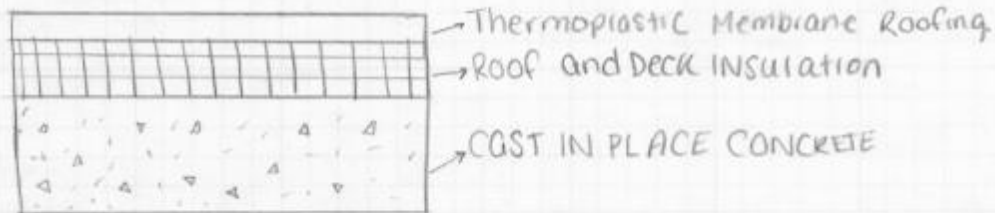 Thermoplastic Membrane Roofing
Roof and Deck INSulation
CAST IN PLACE CONCRETE